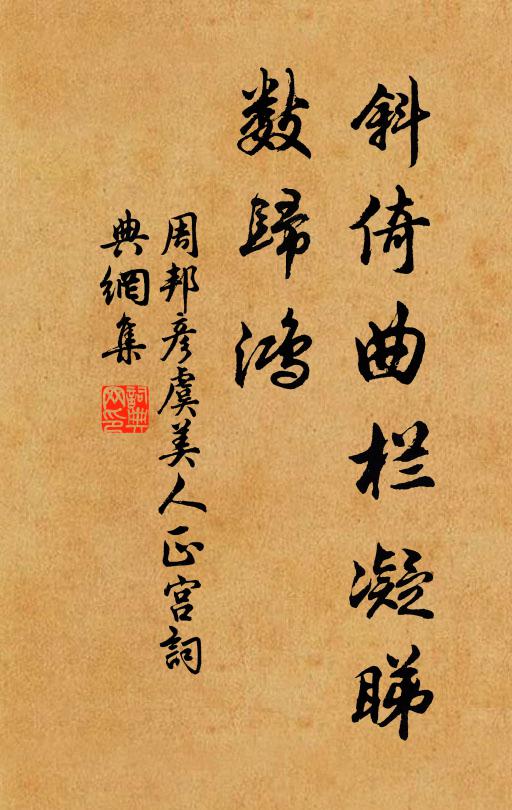 斜倚曲栏凝睇
数歸鸿
周邦彦虞美人正宫詞
典網集
詞典
网印